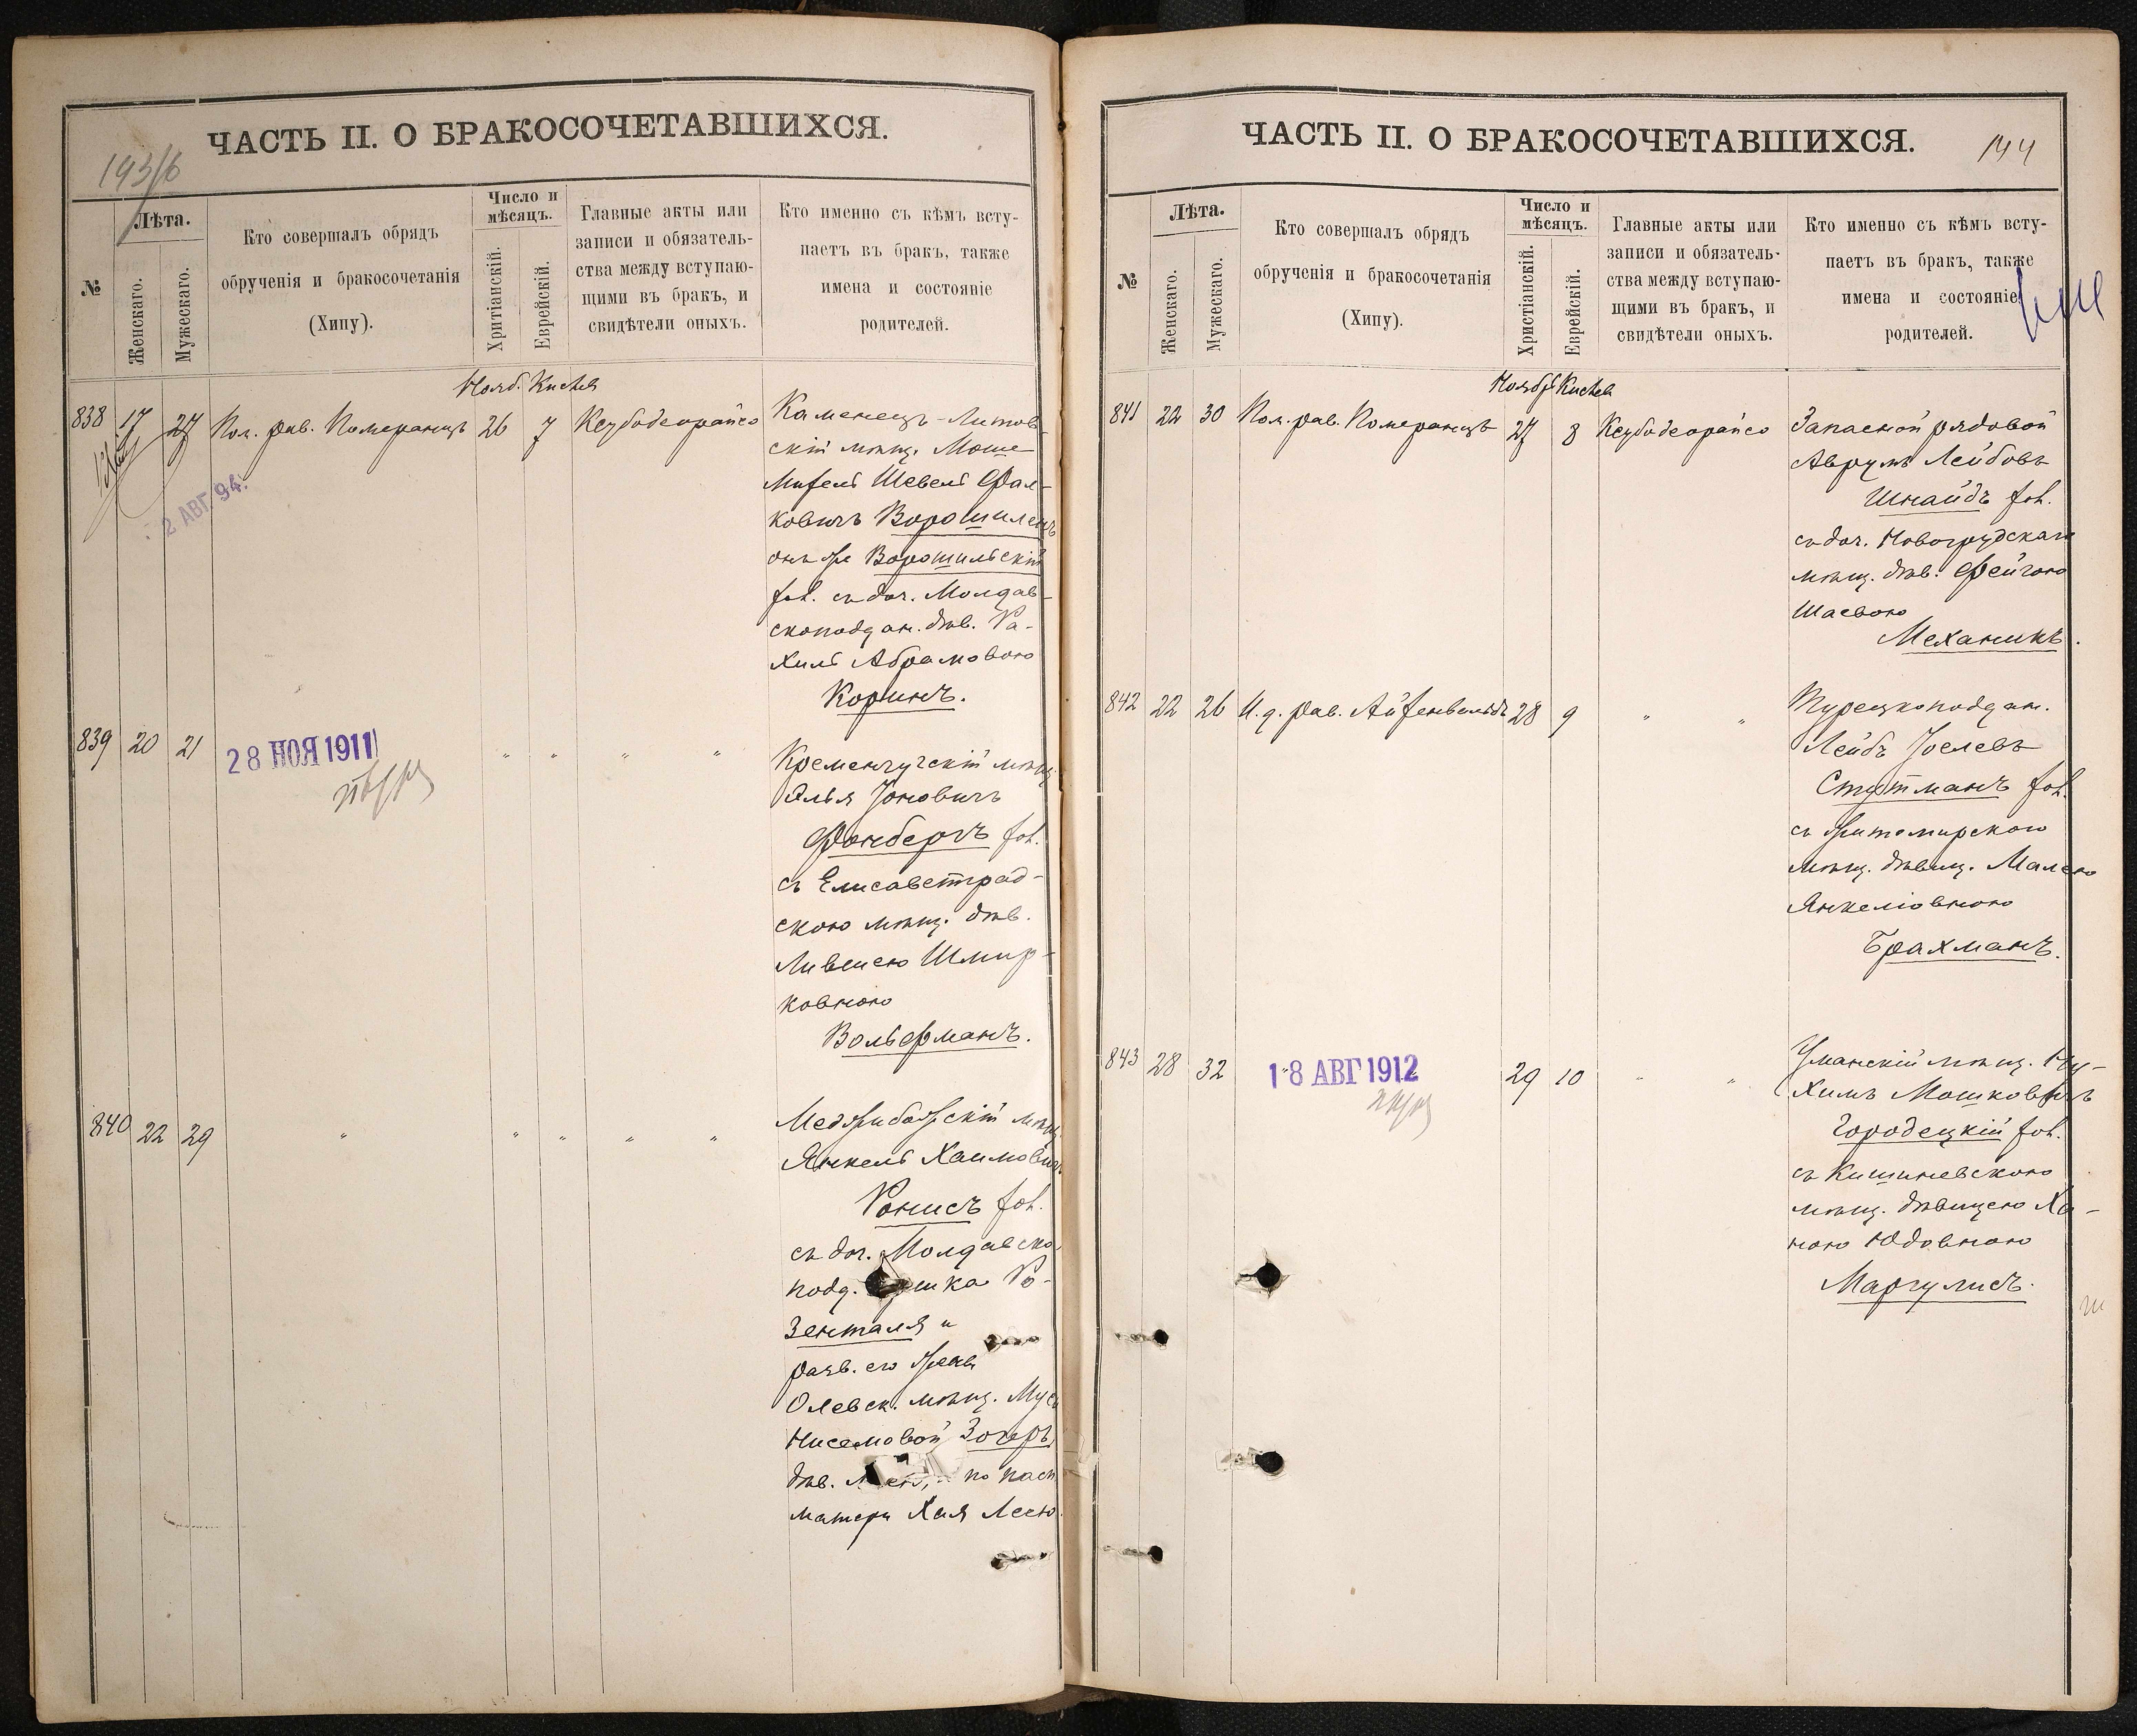 ЧАСТЬ II. О БРАКОСОЧЕТАВШИХСЯ.
193/6
№
Лѣта.
Женскаго.
Мужескаго.
Кто совершалъ обрядъ
обрученія и бракосочетанія
(Хипу).
Число и
мѣсяцъ.
Хритіанскій.
Еврейскій.
Главные акты или
записи и обязатель-
ства между вступаю-
щими въ бракъ, и
свидѣтели оныхъ.
Кто именно съ кѣмъ всту-
паетъ въ бракъ, также
имена и состояніе
родителей.
Нояб. Кислев
838 17 27 Пом. рав. Померанцъ 26 7 Ксубодеорайсо
2 АВГ 94.
Каменецъ-Литов-
скій мѣщ. Моше
Шевель Фал-
ковичъ Ворошилецъ
онъ же Ворошильскій
хол. съ доч. Молдав-
скоподдан. дѣв. Ра-
хиль Абрамовою
Коринъ.
839 20 21 " " " "
28 НОЯ 1911
Кременчугскій мѣщ.
Элья Іоновичъ
Фонбергъ хол.
съ Елисаветград-
скою мѣщ. дѣв.
Лившею Шмир-
ковною
Вольфманъ.
840 22 29 " " " " "
Меджибожскій мѣщ.
Янкель Хаимовичъ
Ронисъ хол.
съ доч. Молдавско-
подд. Ро-
зенталя и
разв. его жены
Олевск. мѣщ. Муси
Нисемовой Зогеръ
дѣв. по пасп.
матери Хая Лесю
ЧАСТЬ II. О БРАКОСОЧЕТАВШИХСЯ.
144
№
Лѣта.
Женскаго.
Мужескаго.
Кто совершалъ обрядъ
обрученія и бракосочетанія
(Хипу).
Число и
мѣсяцъ.
Христіанскій.
Еврейскій.
Главные акты или
записи и обязатель-
ства между вступаю-
щими въ бракъ, и
свидѣтели оныхъ.
Кто именно съ кѣмъ всту-
паетъ въ бракъ, также
имена и состояніе
родителей.
Ноябр Кислев
841 22 30 Пом. рав. Померанцъ 27 8 Ксубодеорайсо
Запасной рядовой
Аврумъ Лейбовъ
Шнайдъ хол.
съ доч. Новогрудскаго
мѣщ. дѣв. Фейгою
Шаевою
Механикъ.
842 22 26 И.д. рав. Айзенвельдъ 28 9 " "
Турецкоподдан.
Лейбъ Іоселевъ
Стутманъ хол.
съ Житомирскою
мѣщ. дѣвиц. Малкою
Янкеліовною
Брахманъ.
843 28 32 " 29 10 " "
18 АВГ 1912
Уманскій мѣщ. Ну-
химъ Мошковичъ
Городецкій хол.
съ Кишиневскою
мѣщ. дѣвицею Ха-
ною Юдовною
Маргулисъ.